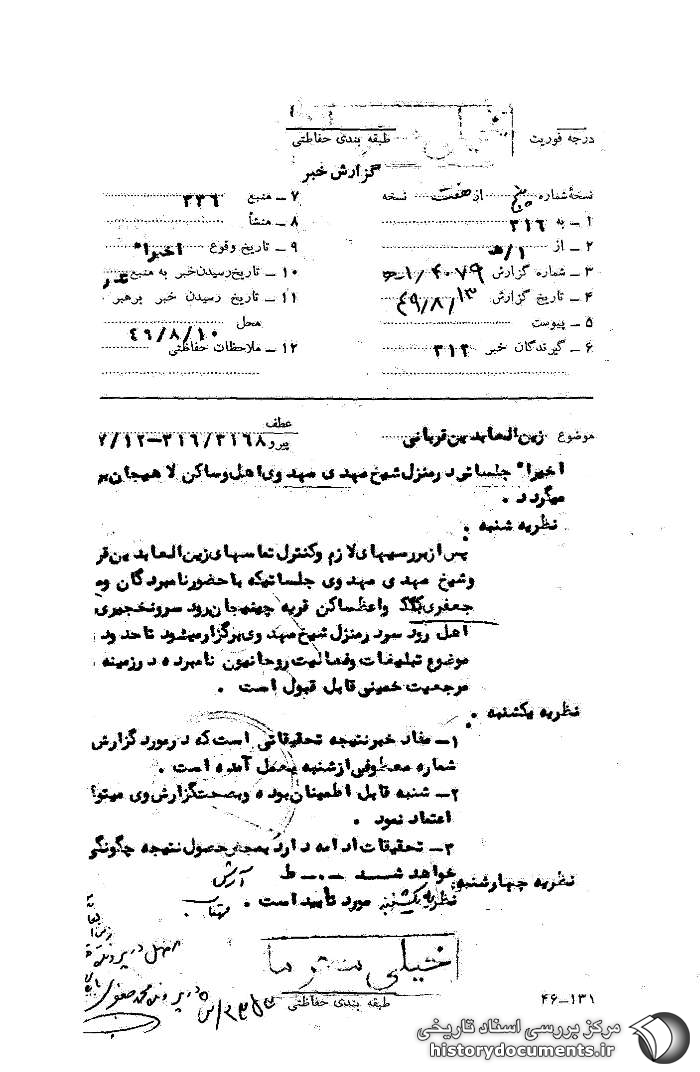 درجه فوریت
طبقه بندی حفاظتی
گزارش خبر
نسخهٔ شماره پنج از هفت نسخه
۱ – به ۳۱۶
۲ – از ۱/ﻫ
۳ – شماره گزارش ۴۰۷۹/
۴ – تاریخ گزارش ۴۹/۸/۱۳
۵ – پیوست
۶ – گیرندگان خبر ۳۱۲
۷ – منبع ۳۳۶
۸ – منشأ
۹ – تاریخ وقوع اخیرا"
۱۰ – تاریخ رسیدن خبر به منبع
۱۱ – تاریخ رسیدن خبر برهبر
محل ۴۹/۸/۱۰
۱۲ – ملاحظات حفاظتی
موضوع زین العابدین قربانی
عطف
پیرو ۷/۱۲–۳۱۶/۳۱۶۸
اخیرا" جلساتی در منزل شیخ مهدی مهدوی اهل و ساکن لاهیجان بر
میگردد .
نظریه شنبه .
پس از بررسیهای لازم و کنترل تماسهای زین العابدین قر
و شیخ مهدی مهدوی جلساتیکه با حضور نامبردگان و
جعفری واعظ ساکن قریه چینیجان رودسر و نخجیری
اهل رودسر در منزل شیخ مهدوی برگزار میشود تا حدود
موضوع تبلیغات و فعالیت روحانیون نامبرده در زمینه
مرجعیت خمینی قابل قبول است .
نظریه یکشنبه .
۱– مفاد خبر نتیجه تحقیقاتی است که در مورد گزارش
شماره معطوفی از شنبه بعمل آمده است .
۲– شنبه قابل اطمینان بوده و بصحت گزارش وی میتوا
اعتماد نمود .
۳– تحقیقات ادامه دارد بمحض حصول نتیجه چگونگی
خواهد شد –.– ط
نظریه چهارشنبه:
نظریه یکشنبه مورد تأیید است .
خیلی
طبقه بندی حفاظتی
۱۳۱–۴۶
اصل در پرونده
در پرونده محمد
مرکز بررسی اسناد تاریخی
historydocuments.ir